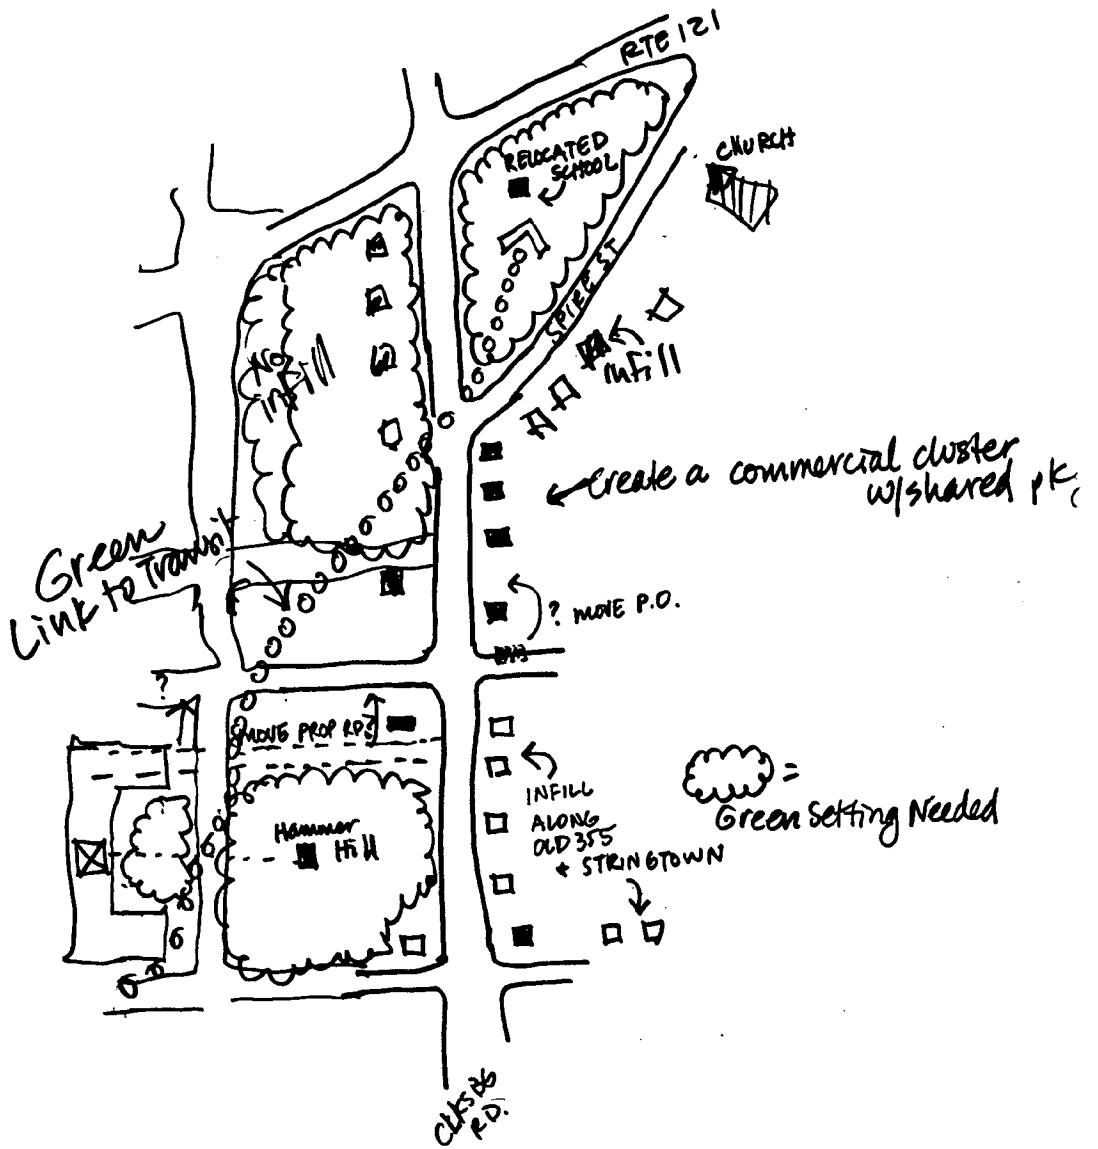 RTE 121
CHURCH
RELOCATED
SCHOOL
SPIRE ST
No
infill
infill
Create a commercial cluster
w/shared pk,
Green
Link to Transit
? MOVE P.O.
?
MOVE PROP RD?
INFILL
ALONG
OLD 355
& STRINGTOWN
=
Green Setting Needed
Hammer
Hill
CLKSBG
RD.